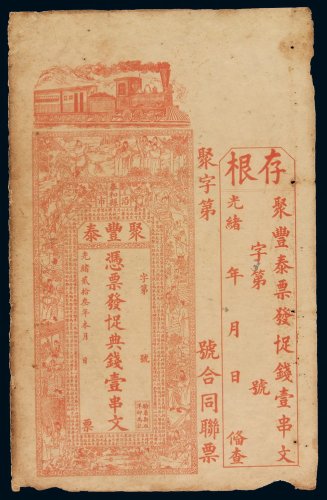 存根
聚豐泰票發促錢壹串文
字第 號
光緒 年 月 日 俻查
聚字第 號合同聯票
聚豐泰
字第 號
憑票發促典錢壹串文
光緒貳拾叁年本月 日 票